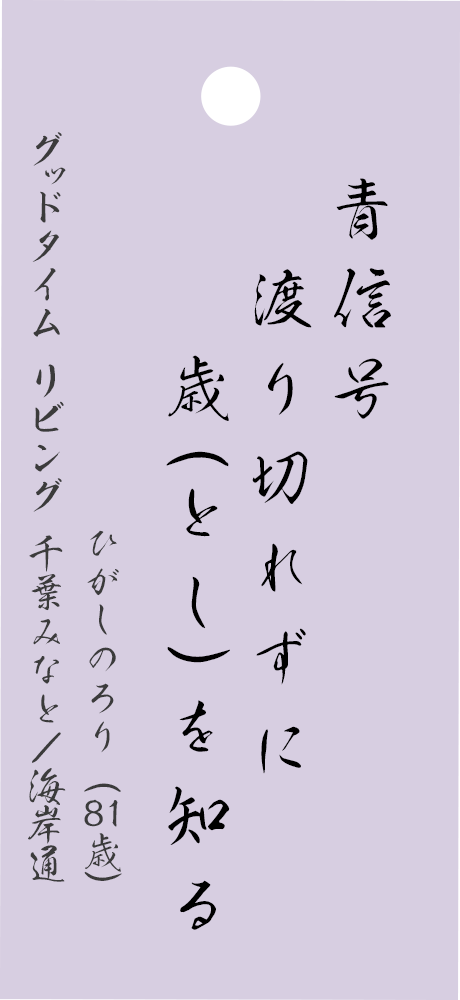 青信号
渡り切れずに
歳(とし)を知る
ひがしのろり (81歳)
グッドタイム リビング 千葉みなと/海岸通